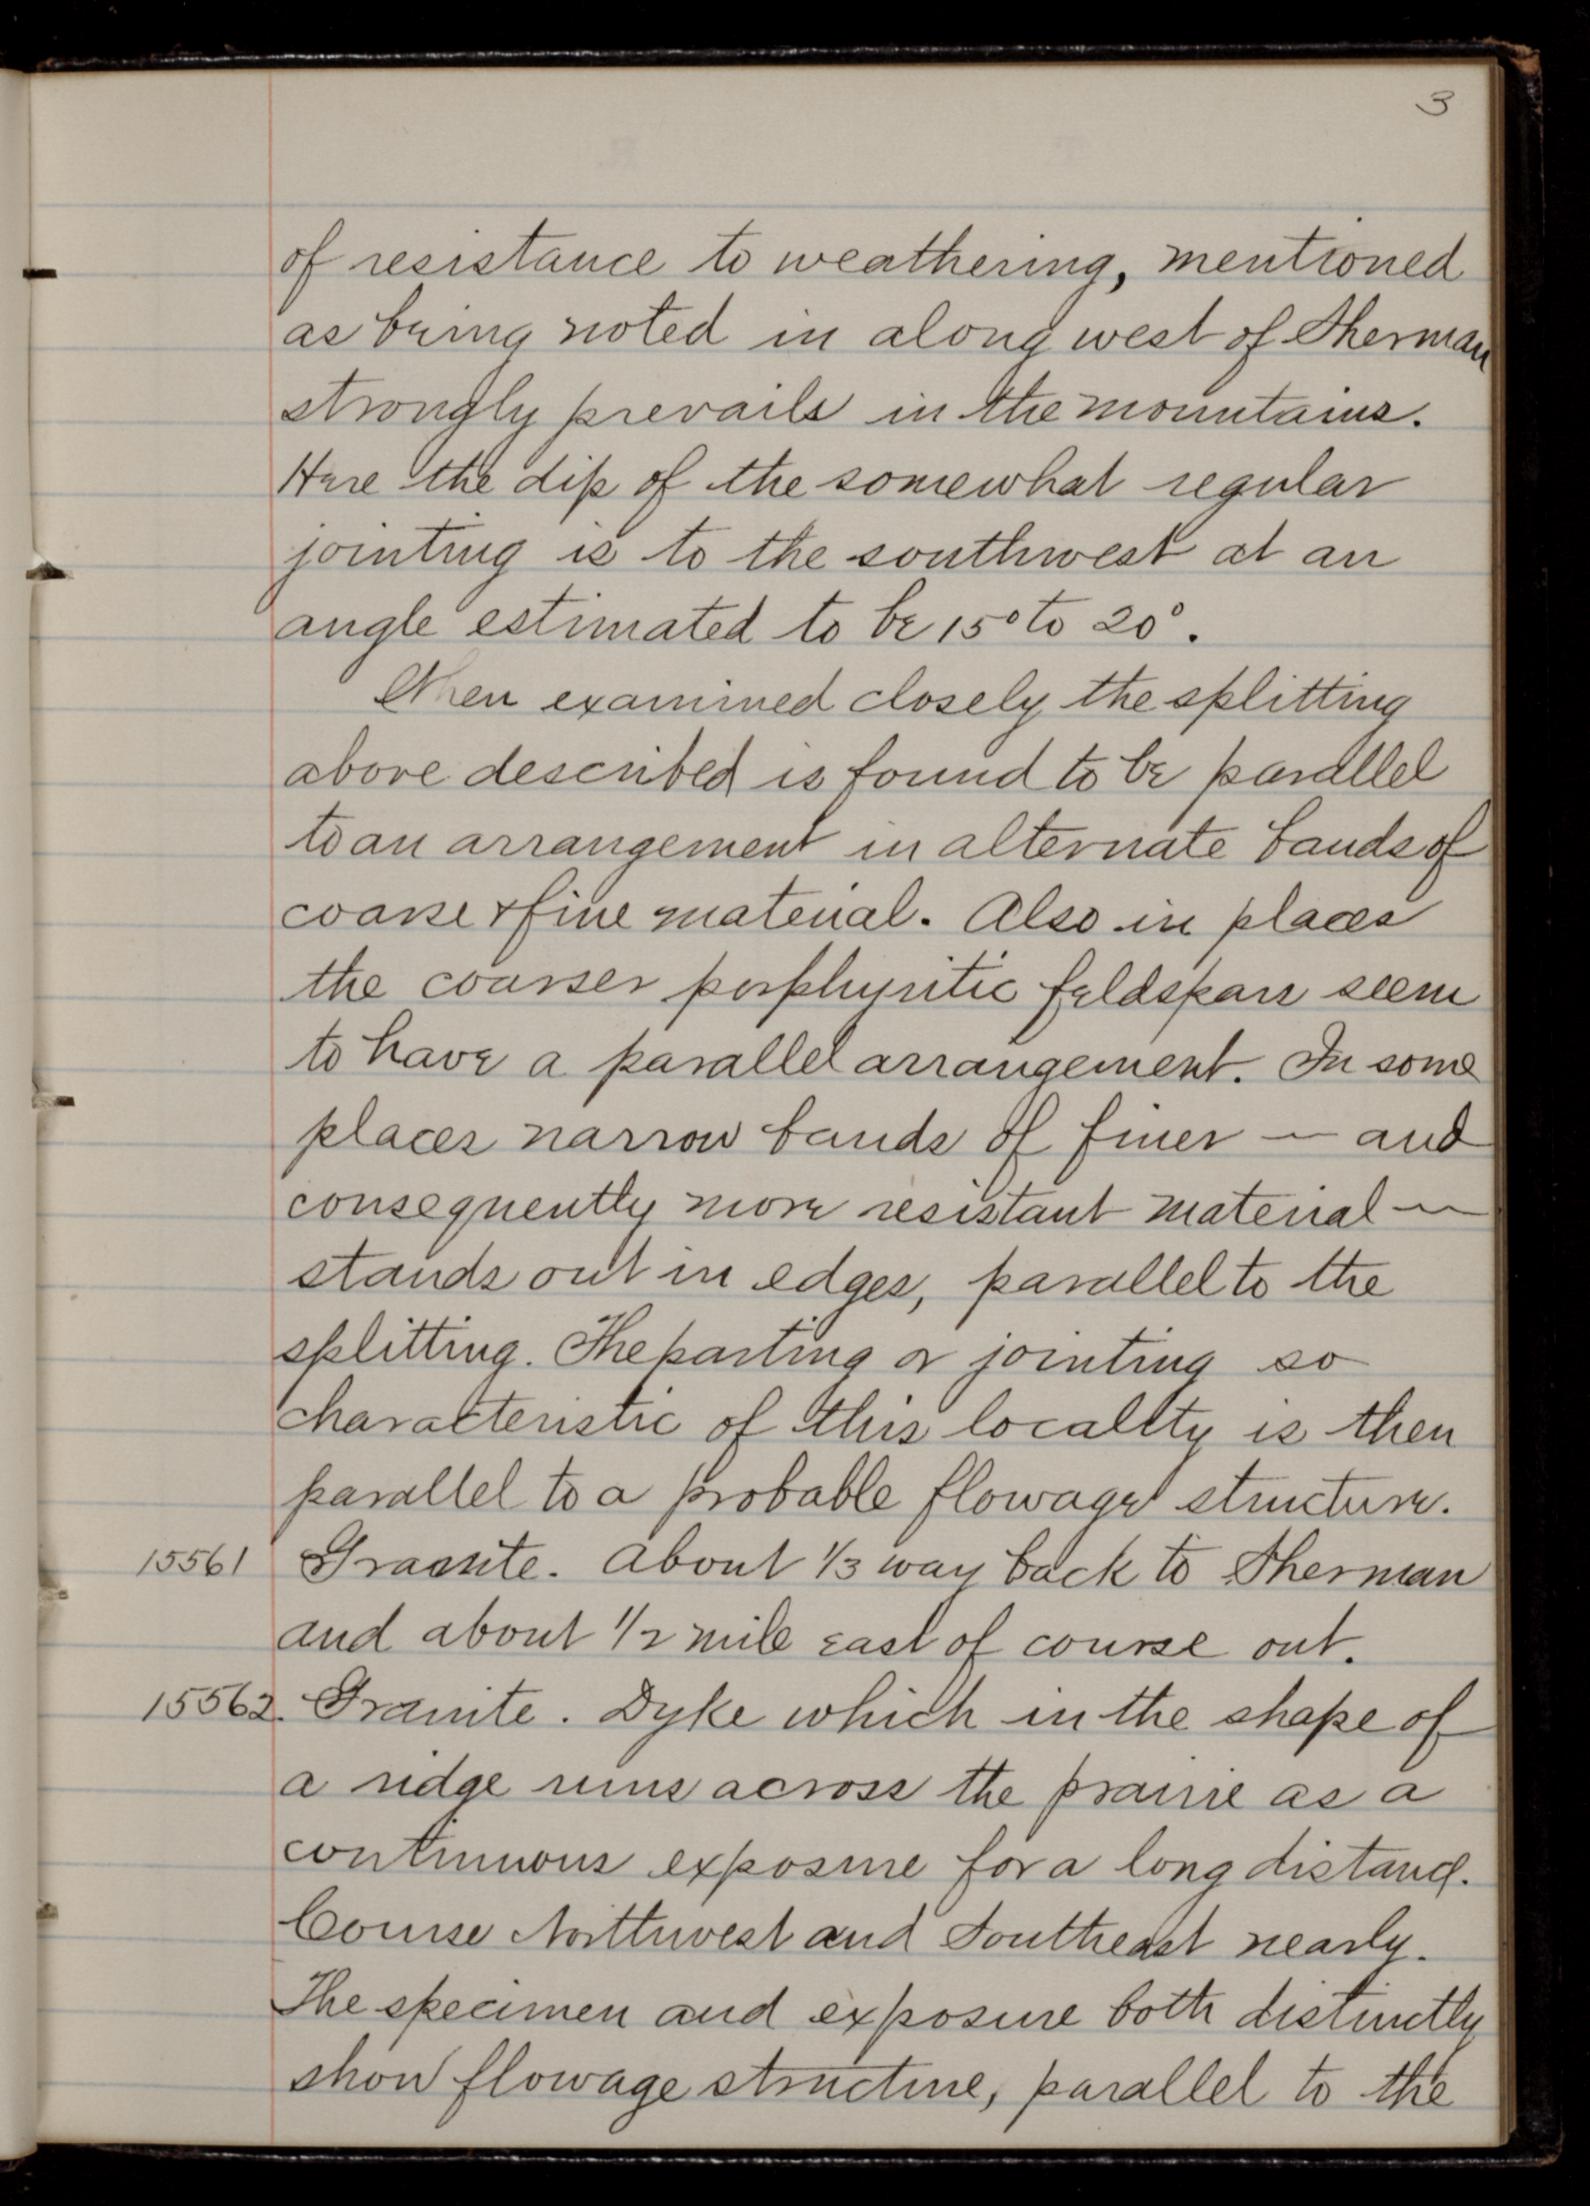 3
of resistance to weathering, mentioned
as being noted in along west of Sherman
strongly prevails in the mountains.
Here the dip of the somewhat regular
jointing is to the southwest at an
angle estimated to be 15° to 20°.
When examined closely the splitting
above described is found to be parallel
to an arrangement in alternate bands of
coarse & fine material. Also in places
the courser porphyritic feldspars seem
to have a parallel arrangement. In some
places narrow bands of finer — and
consequently more resistant material —
stands out in edges, parallel to the
splitting. The parting or jointing so
characteristic of this locality is then
parallel to a probable flowage structure.
15561 Granite. About 1/3 way back to Sherman
and about 1/2 mile east of course out.
15562. Granite. Dyke which in the shape of
a ridge runs across the prairie as a
continuous exposure for a long distance.
Course Northwest and Southeast nearly.
The specimen and exposure both distinctly
show flowage structure, parallel to the